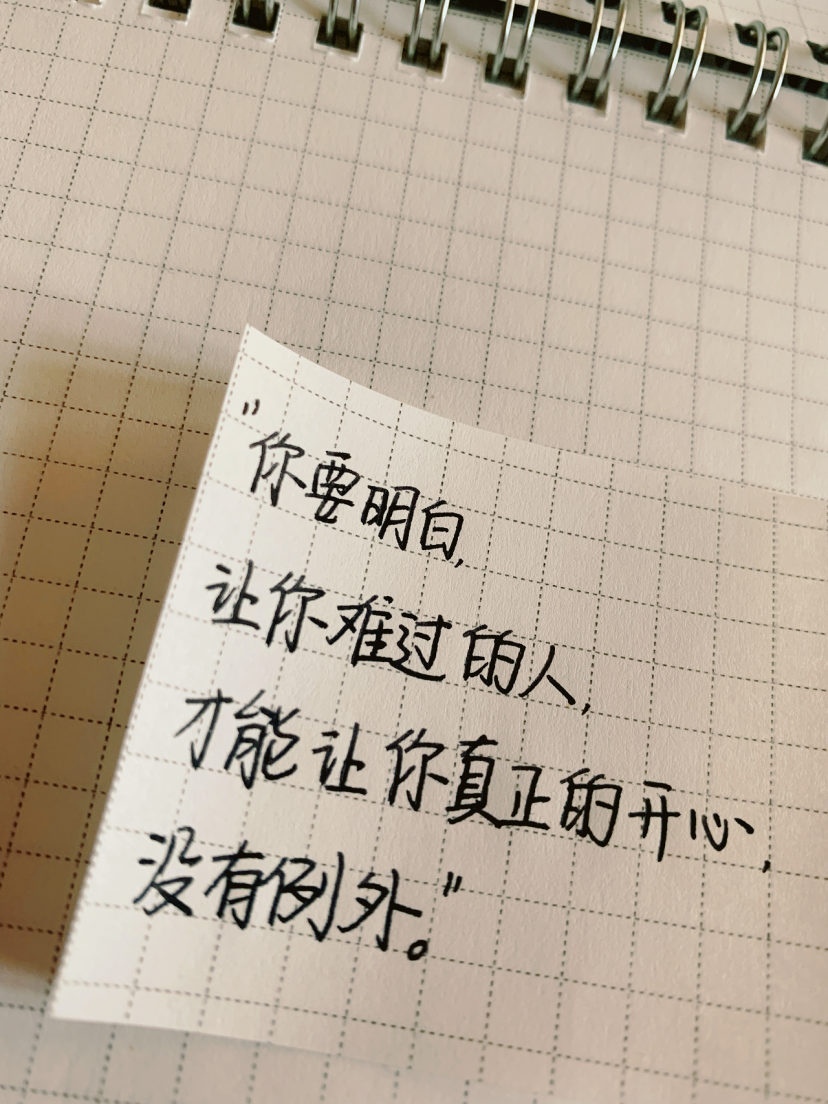 "你要明白,
让你难过的人,
才能让你真正的开心,
没有例外。"